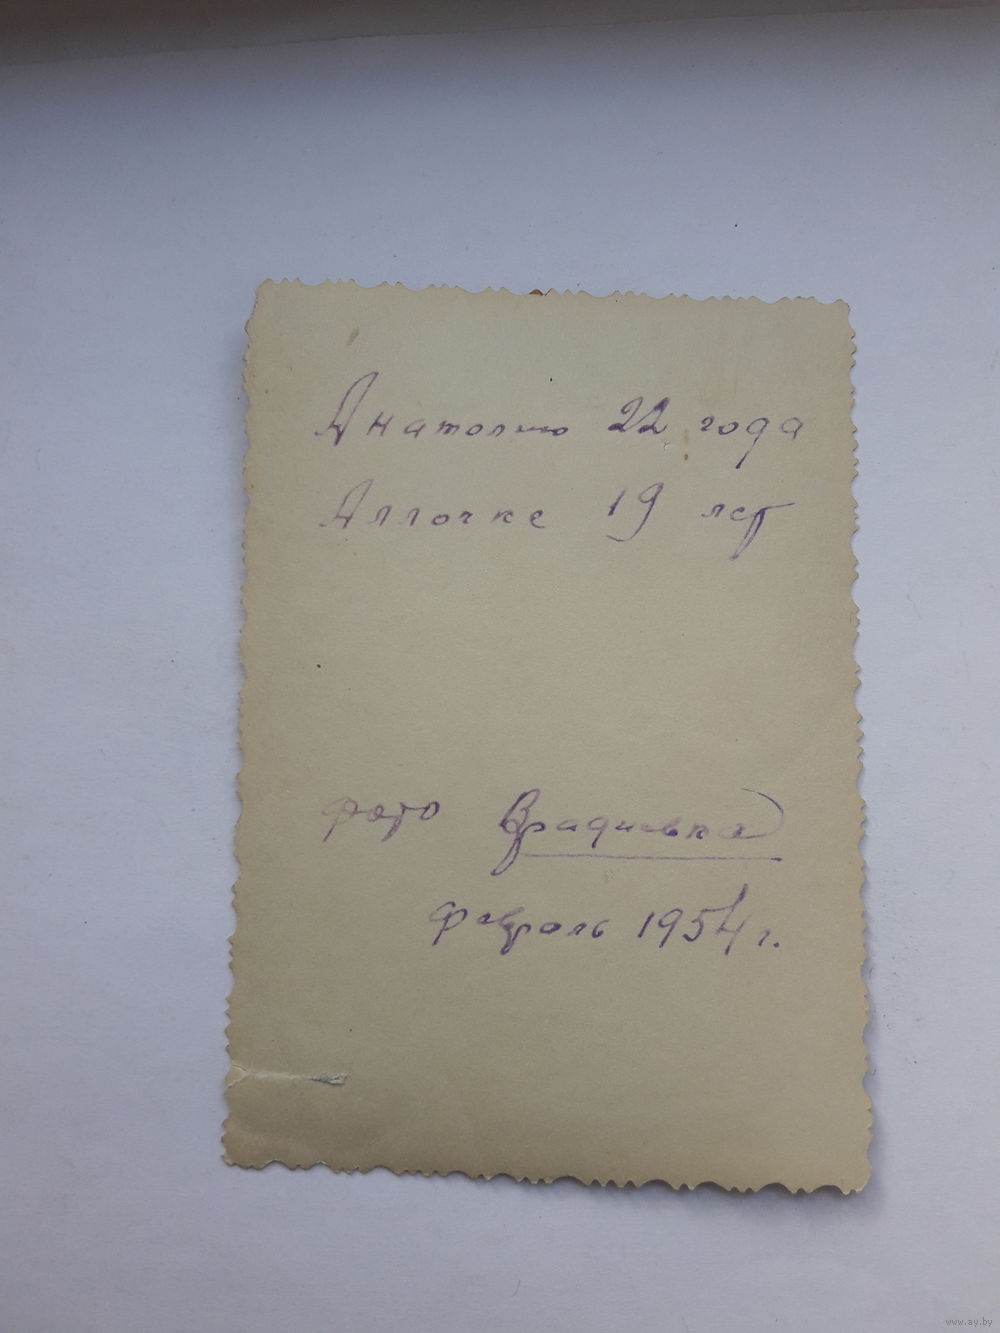 Анатолию 22 года
Аллочке 19 лет
фото Врадиевка
февраль 1954 г.
www.ay.by